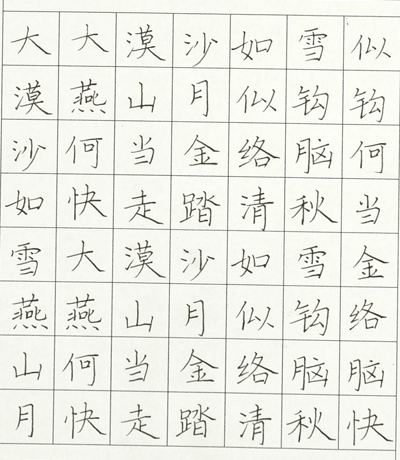 大大漠沙如雪似
漠燕山月似钩钩
沙何当金络脑何
如快走踏清秋当
雪大漠沙如雪金
燕燕山月似钩络
山何当金络脑脑
月快走踏清秋快